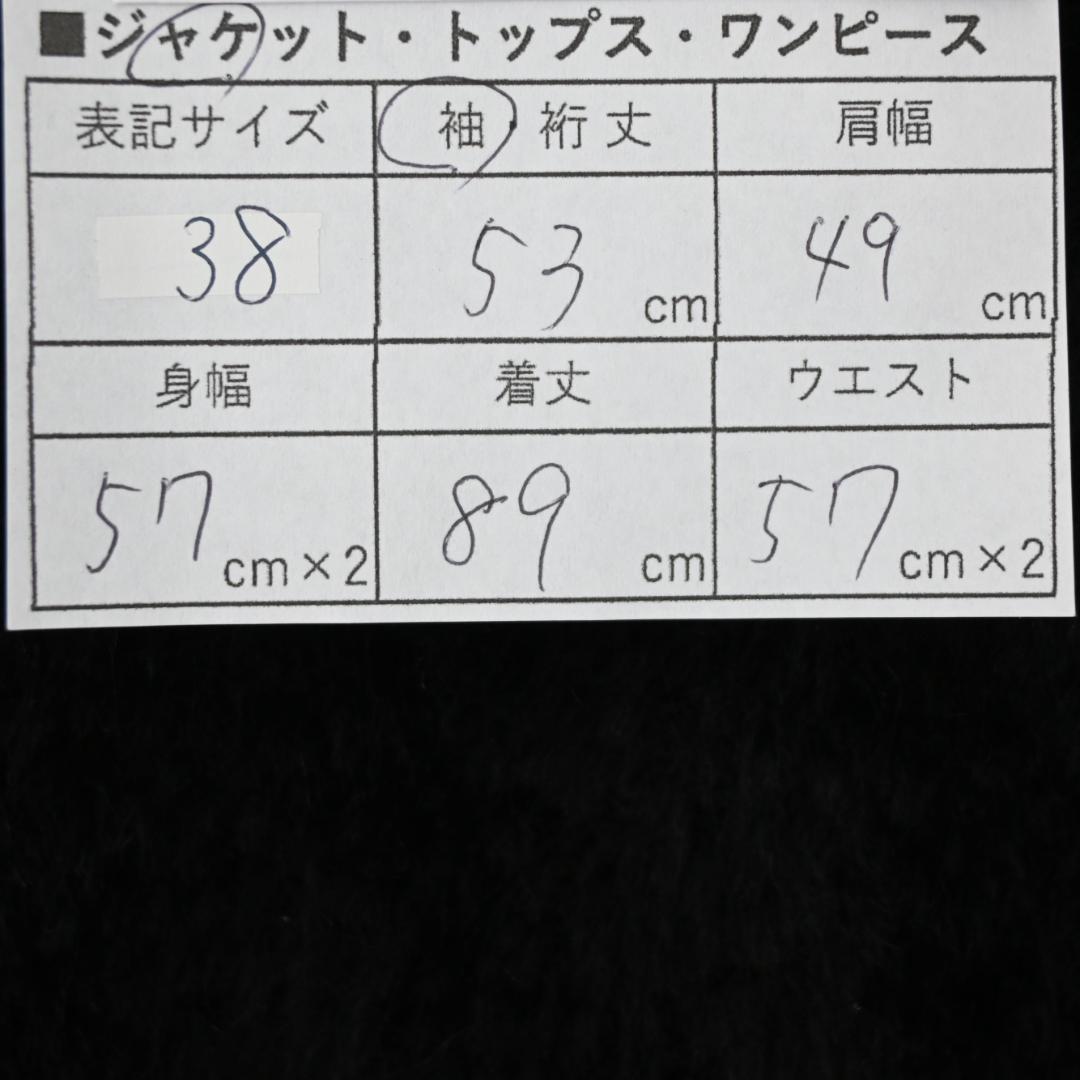 ■ジャケット・トップス・ワンピース
表記サイズ 袖・裄丈 肩幅
38 53 cm 49 cm
身幅 着丈 ウエスト
57 cm×2 89 cm 57 cm×2